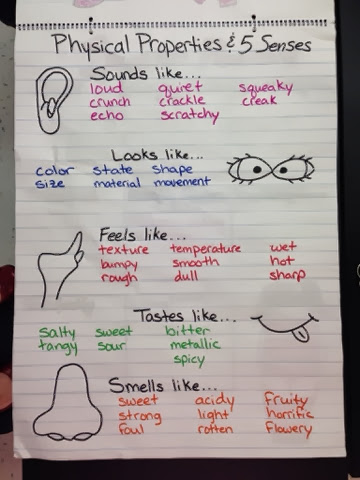 Physical Properties & 5 Senses
Sounds like...
loud quiet squeaky
crunch crackle creak
echo scratchy
Looks like...
color state shape
size material movement
Feels like...
texture temperature wet
bumpy smooth hot
rough dull sharp
Tastes like...
salty sweet bitter
tangy sour metallic
spicy
Smells like...
sweet acidy fruity
strong light horrific
foul rotten flowery